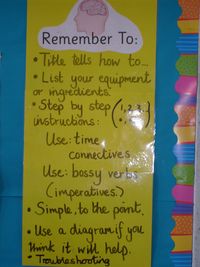 Remember To:
• Title tells how to...
• List your equipment
or ingredients.
• Step by step (1, 2, 3)
instructions:
Use: time
connectives
Use: bossy verbs
(imperatives.)
• Simple, to the point.
• Use a diagram if you
think it will help.
• Troubleshooting